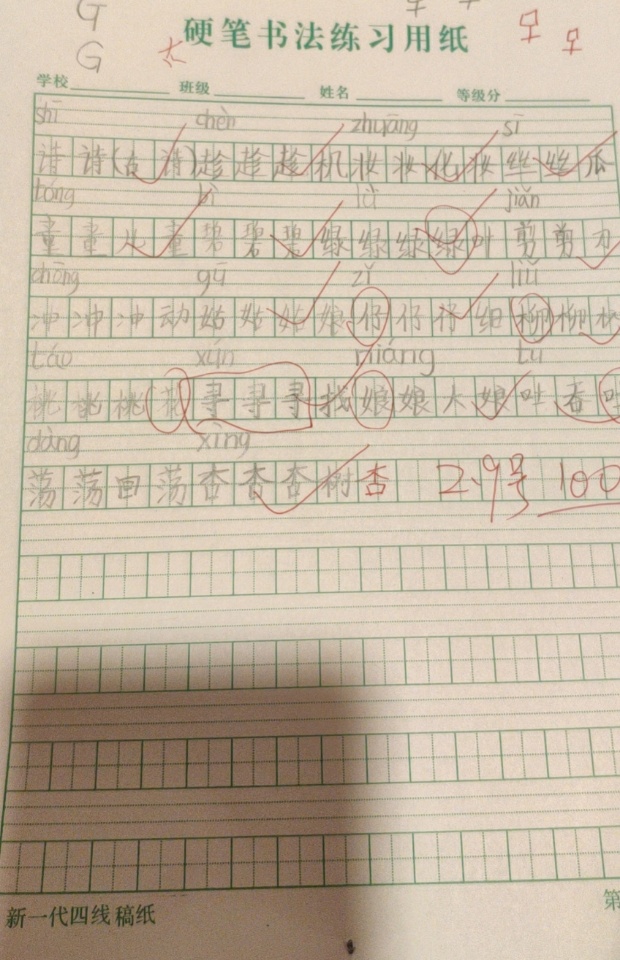 G
G 太
硬笔书法练习用纸
学校 班级 姓名 等级分
shī chèn zhuāng sī
诗诗(古诗)趁趁趁机妆妆化妆丝丝瓜
tóng bì lǜ jiǎn
童童儿童碧碧碧绿绿绿绿叶剪剪刀
chōng gū zǐ liǔ
冲冲冲动姑姑姑娘仔仔仔细柳柳
táo xún niáng tǔ
桃桃桃花寻寻寻找娘娘大娘吐
dàng xìng
荡荡荡杏杏杏树杏 2.9号 100
新一代四线稿纸 第